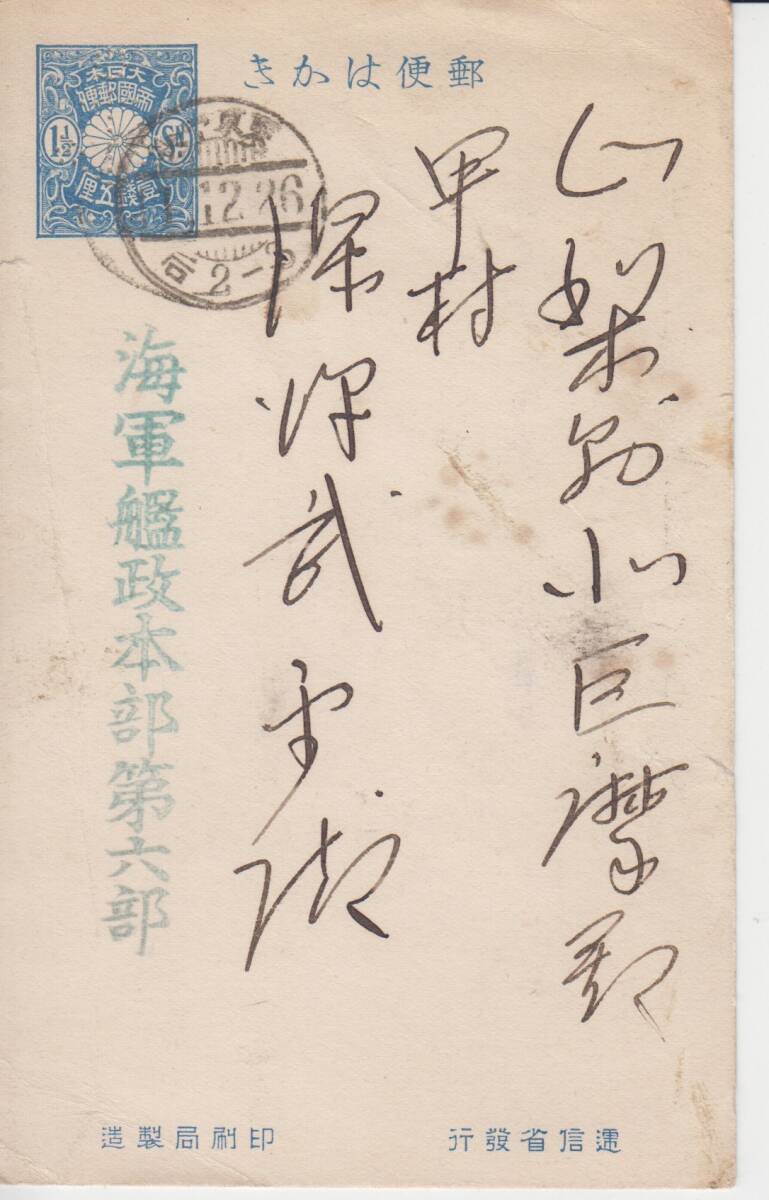 郵便はかき
大日本
帝國郵便
1½
Sn
壹錢五厘
12.26
2-3
山梨縣北巨摩郡
甲村
深沢武重殿
海軍艦政本部第六部
遞信省發行
印刷局製造